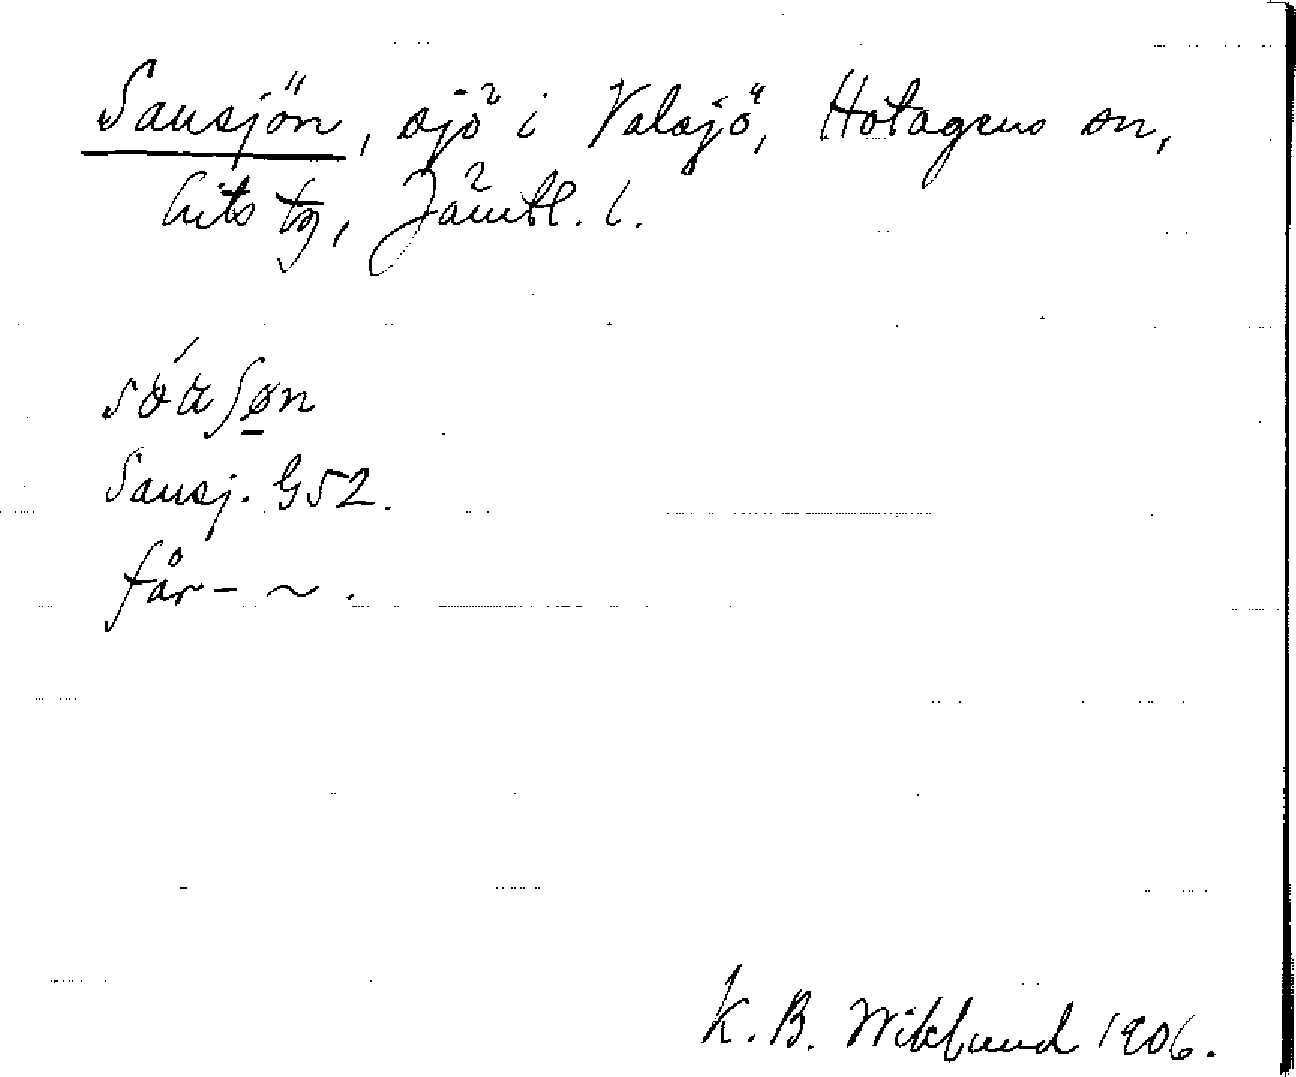 Sausjön, sjö i Valsjö, Hotagens sn,
Lits tg, Jämtl. l.
Sausj. G52.
får- ~ .
K. B. Wiklund 1906.